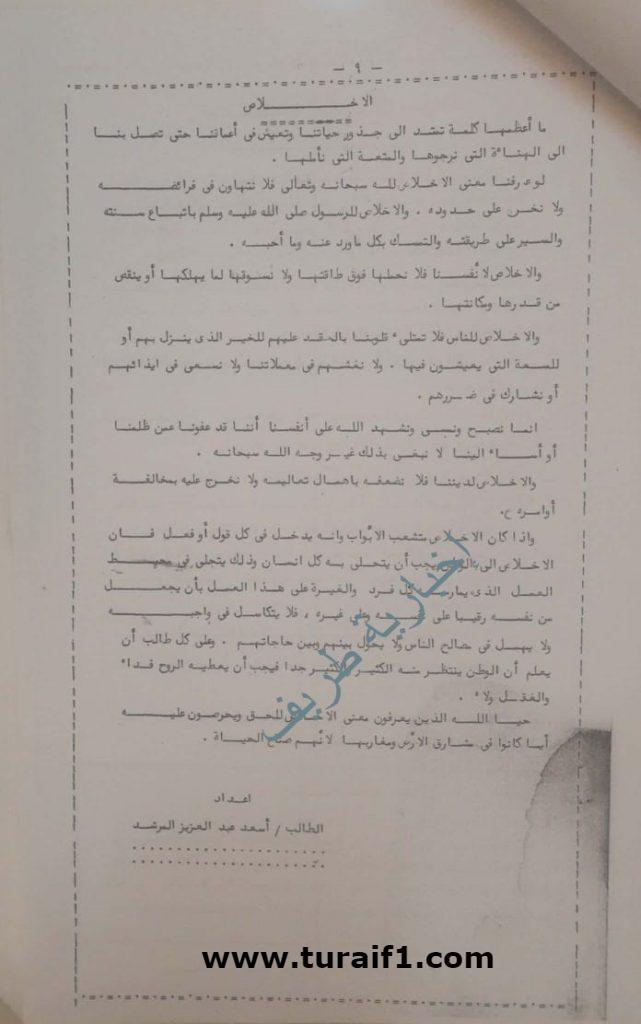 - ٩ -
الاخلاص
ما أعظمها كلمة تمتد الى جذور حياتنا وتعيش فى أعماقنا حتى تصل بنا
الى الهناءة التى نرجوها والمتعة التى نأملها .
لو عرفنا معنى الاخلاص لله سبحانه وتعالى فلا نتهاون فى فرائضه
ولا نخرج على حدوده . والاخلاص للرسول صلى الله عليه وسلم باتباع سنته
والسير على طريقته والتمسك بكل ماورد عنه وما أحبه .
والاخلاص لأنفسنا فلا نحملها فوق طاقتها ولا نسوقها لما يهلكها أو ينقص
من قدرها ومكانتها .
والاخلاص للناس فلا تمتلىء قلوبنا بالحقد عليهم للخير الذى ينزل بهم أو
للسعة التى يعيشون فيها . ولا نغشهم فى معملاتنا ولا نسعى فى ايذائهم
أو نشارك فى ضررهم .
انما نصبح ونمسى ونشهد الله على أنفسنا أننا قد عفونا عمن ظلمنا
أو أساء الينا لا نبغى بذلك غير وجه الله سبحانه .
والاخلاص لديننا فلا نضعفه باهمال تعاليمه ولا نخرج عليه بمخالفة
أوامره .
واذا كان الاخلاص متشعب الأبواب وانه يدخل فى كل قول أو فعل فان
الاخلاص الى الوطن يجب أن يتحلى به كل انسان وذلك يتجلى فى محيط
العمل الذى يمارسه كل فرد والغيرة على هذا العمل بأن يجعل
من نفسه رقيبا على نفسه وعلى غيره ، فلا يتكاسل فى واجبه
ولا يهمل فى مصالح الناس ولا يحول بينهم وبين حاجاتهم . وعلى كل طالب أن
يعلم أن الوطن ينتظر منه الكثير الكثير جدا فيجب أن يعطيه الروح فداء
والعقل ولاء .
حيا الله الذين يعرفون معنى الاخلاص للحق ويحرصون عليه
أينما كانوا فى مشارق الأرض ومغاربها لأنهم صناع الحياة .
اعداد
الطالب / أسعد عبد العزيز المرشد
اخبارية طريف
www.turaif1.com